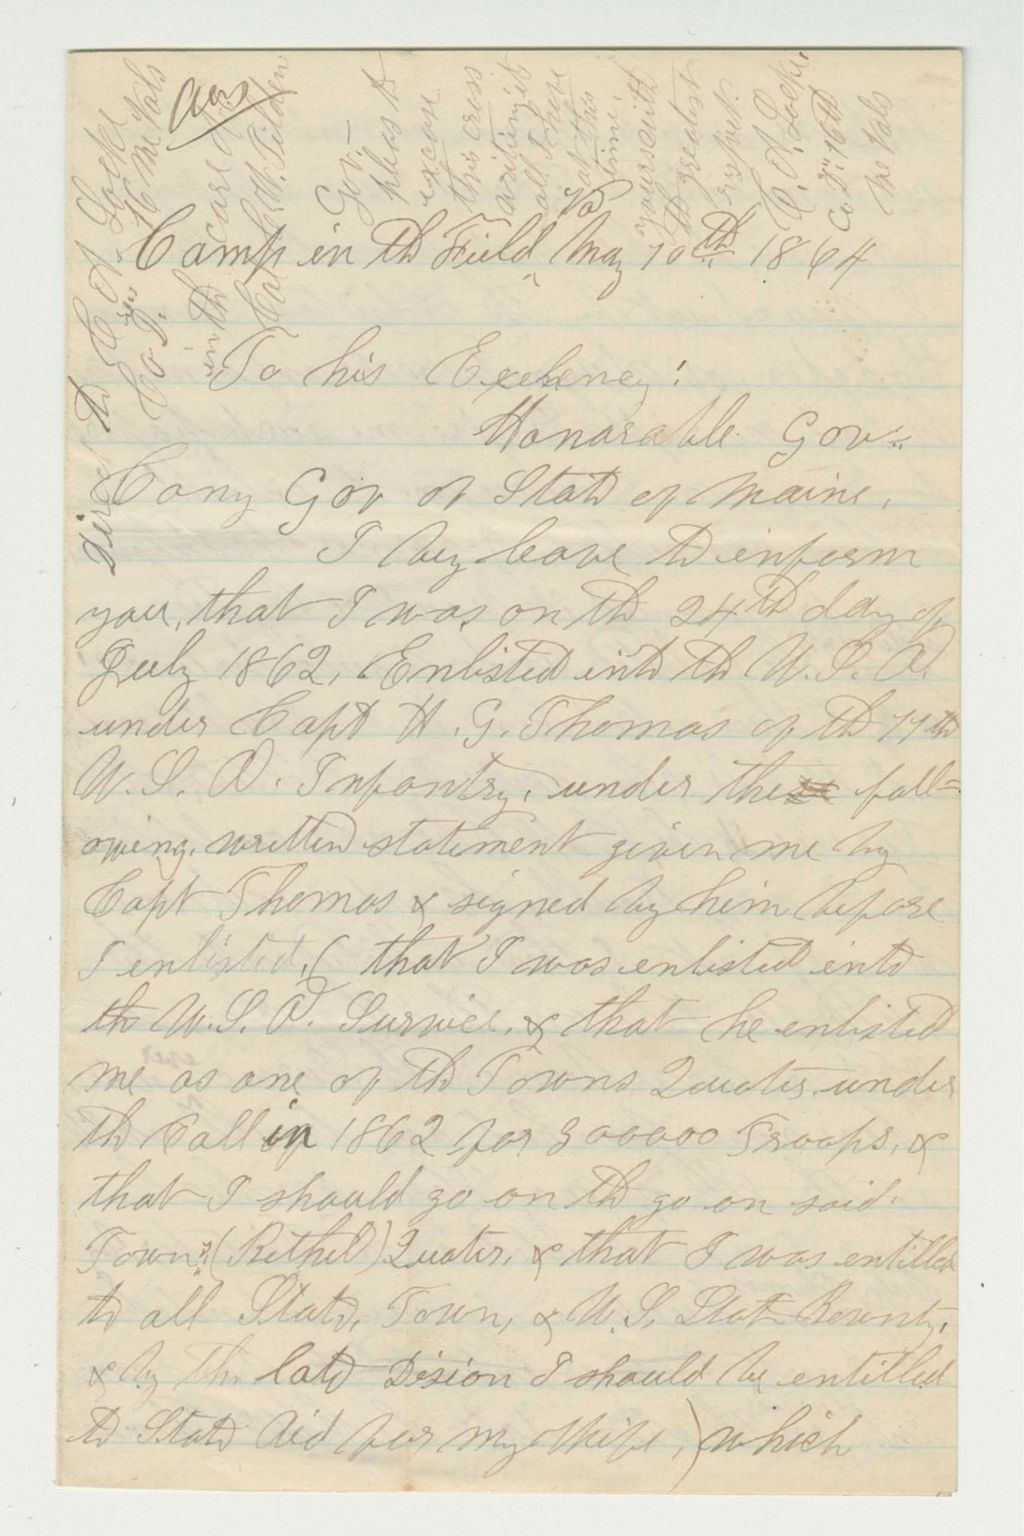 Camp in th Field Va May 10th 1864
To his Excelency!
Honarable Gov..
Cony Gov of State of Maine.
I beg leave to inform
you, that I was on th 24th day of
July 1862, Enlisted into th U.S.A.
under Capt H. G. Thomas of th 11th
U.S.A. Infantry, under the foll-
owing written statement given me by
Capt Thomas & signed by him before
I enlisted, ( that I was enlisted into
th U.S.A. Survice, & that he enlisted
me as one of th Towns Quater under
th Call in 1862 for 300000 Troops, &
that I should go on th go on said
Town, (Bethel) Quater, & that I was entitled
to all State, Town, & U.S. State Bounty,
& by the late Dision I should be entitled
to State Aid for my Wife,) which
Direct to C. A. Locke
Co. D. 16 Me Vols
in th care of
Col. C. W. Tilden
Ans
Gov.—
pleas to
excuse
this cross
writing it
all I have
at this
time,
yours with
th greatest
respect.
C. A. Locke,
Co D. 16th
Me Vols